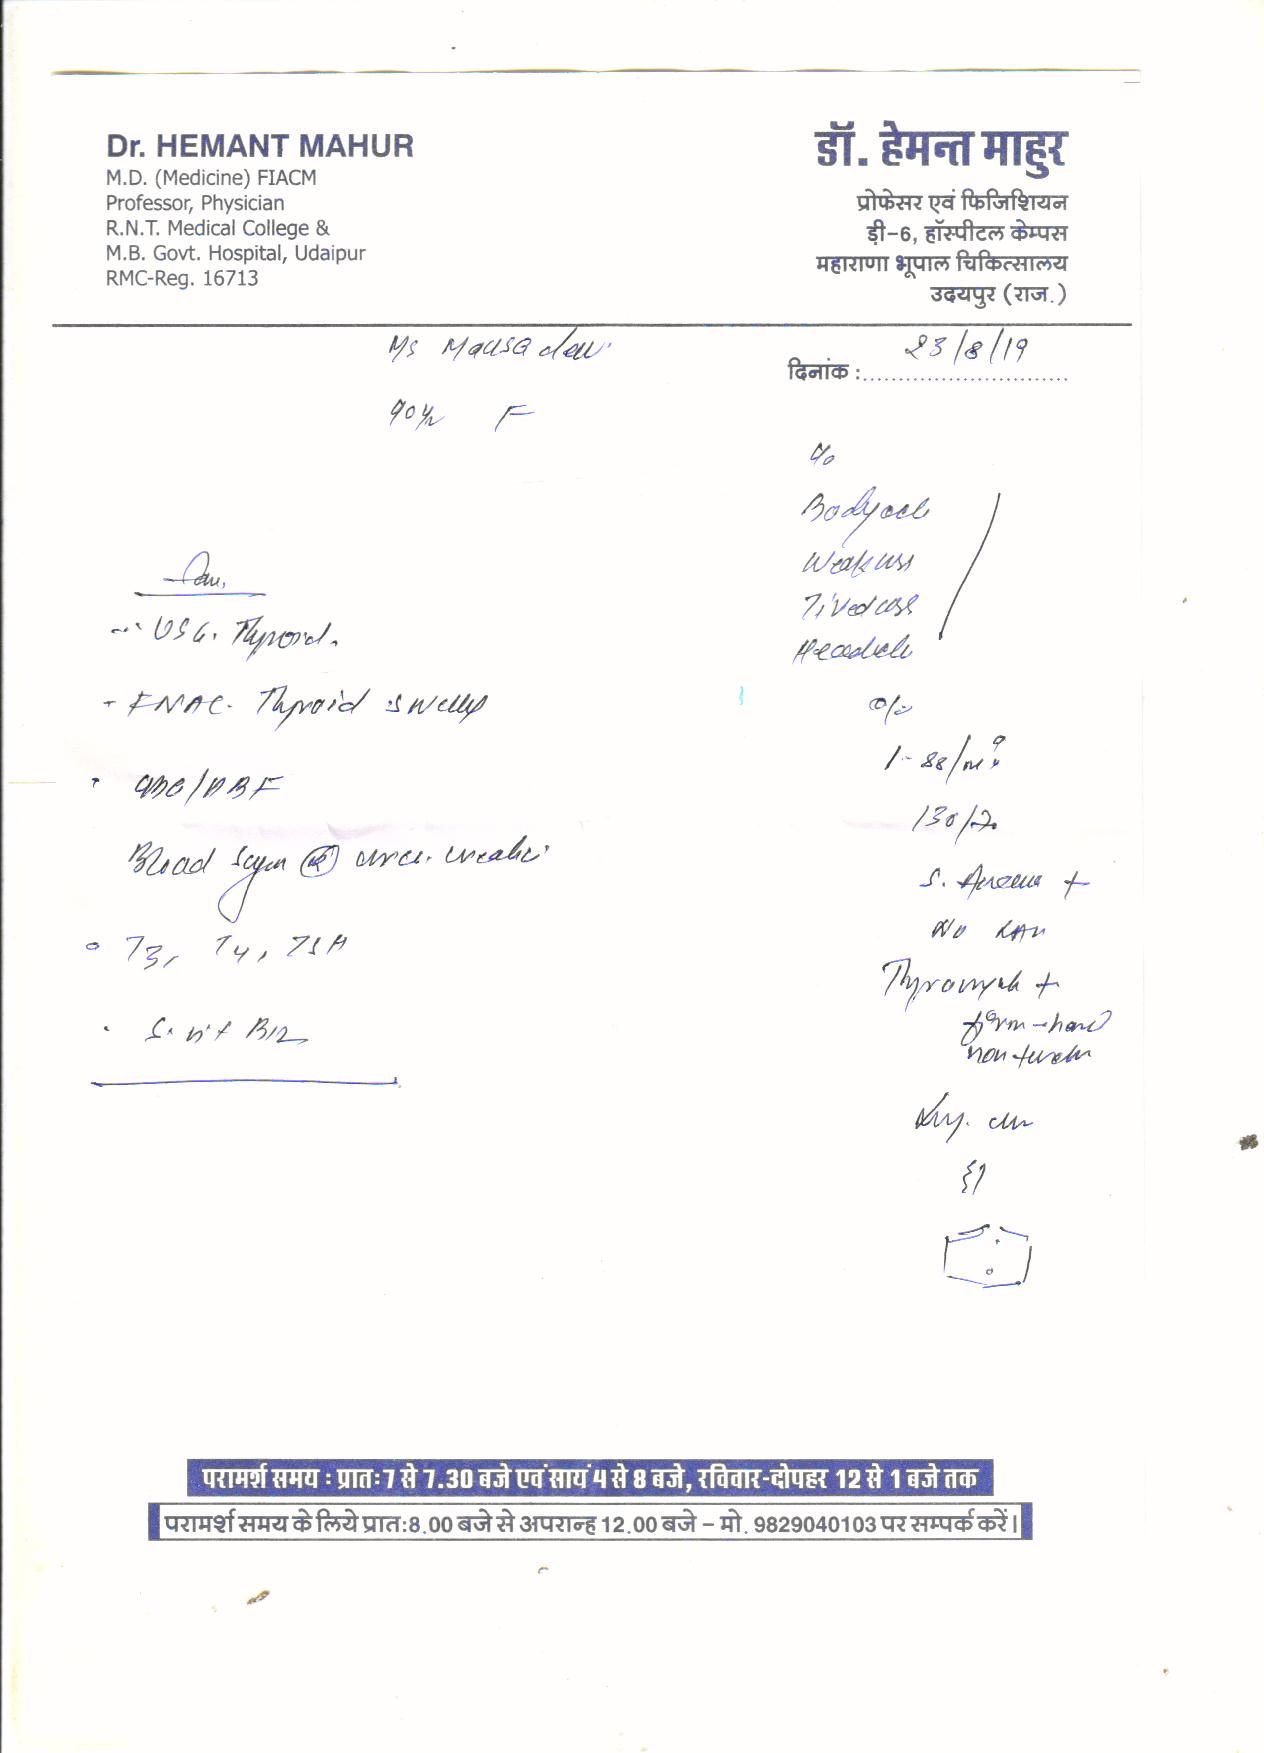 Dr. HEMANT MAHUR
M.D. (Medicine) FIACM
Professor, Physician
R.N.T. Medical College &
M.B. Govt. Hospital, Udaipur
RMC-Reg. 16713
डॉ. हेमन्त माहुर
प्रोफेसर एवं फिजिशियन
ड़ी-6, हॉस्पीटल केम्पस
महाराणा भूपाल चिकित्सालय
उदयपुर (राज.)
Ms
दिनांक : 23/8/19
F
c/o
Bodyache
Weakness
Tiredness
Headache
- USG. Thyroid.
- FNAC. Thyroid swelling
o/e
88/m
130/70
CBC/PBF
Blood Sugar urea. creatin
S. Anaemia +
No LAN
T3, T4, TSH
+
firm - hard
non tender
S. Vit B12
परामर्श समय : प्रातः 7 से 7.30 बजे एवं सायं 4 से 8 बजे, रविवार-दोपहर 12 से 1 बजे तक
परामर्श समय के लिये प्रातः 8.00 बजे से अपरान्ह 12.00 बजे – मो. 9829040103 पर सम्पर्क करें।